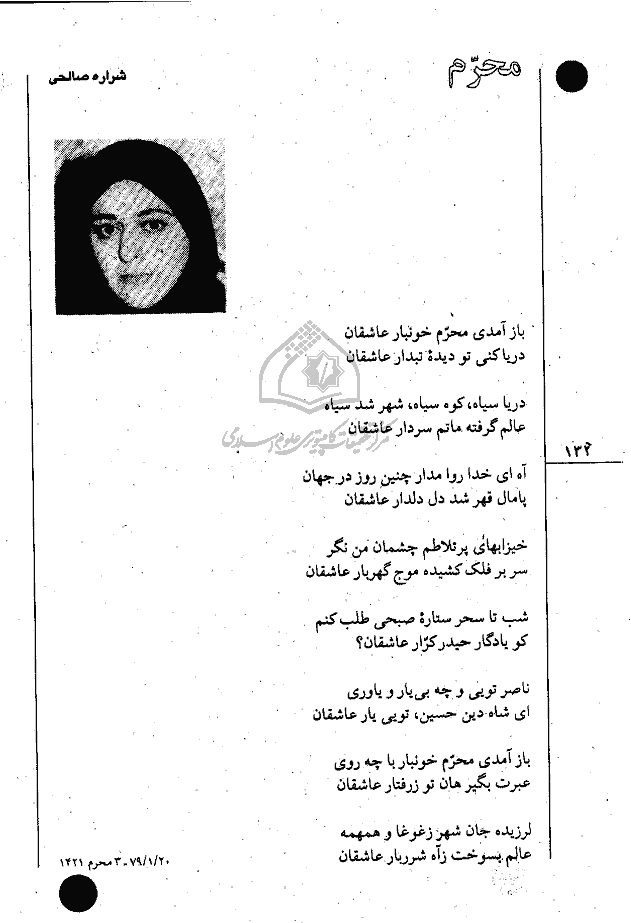 محرّم
شراره صالحی
باز آمدی محرّم خونبار عاشقان
دریا کنی تو دیدهٔ تبدار عاشقان
دریا سیاه، کوه سیاه، شهر شد سیاه
عالم گرفته ماتم سردار عاشقان
آه ای خدا روا مدار چنین روز در جهان
پامال قهر شد دل دلدار عاشقان
خیزابهای پرتلاطم چشمان من نگر
سر بر فلک کشیده موج گهربار عاشقان
شب تا سحر ستارهٔ صبحی طلب کنم
کو یادگار حیدر کرّار عاشقان؟
ناصر تویی و چه بی‌یار و یاوری
ای شاه دین حسین، تویی یار عاشقان
باز آمدی محرّم خونبار با چه روی
عبرت بگیر هان تو زرفتار عاشقان
لرزیده جان شهر زغوغا و همهمه
عالم بسوخت زآه شرربار عاشقان
۷۹/۱/۲۰ ـ ۳ محرم ۱۴۲۱
مرکز تحقیقات کامپیوتری علوم اسلامی